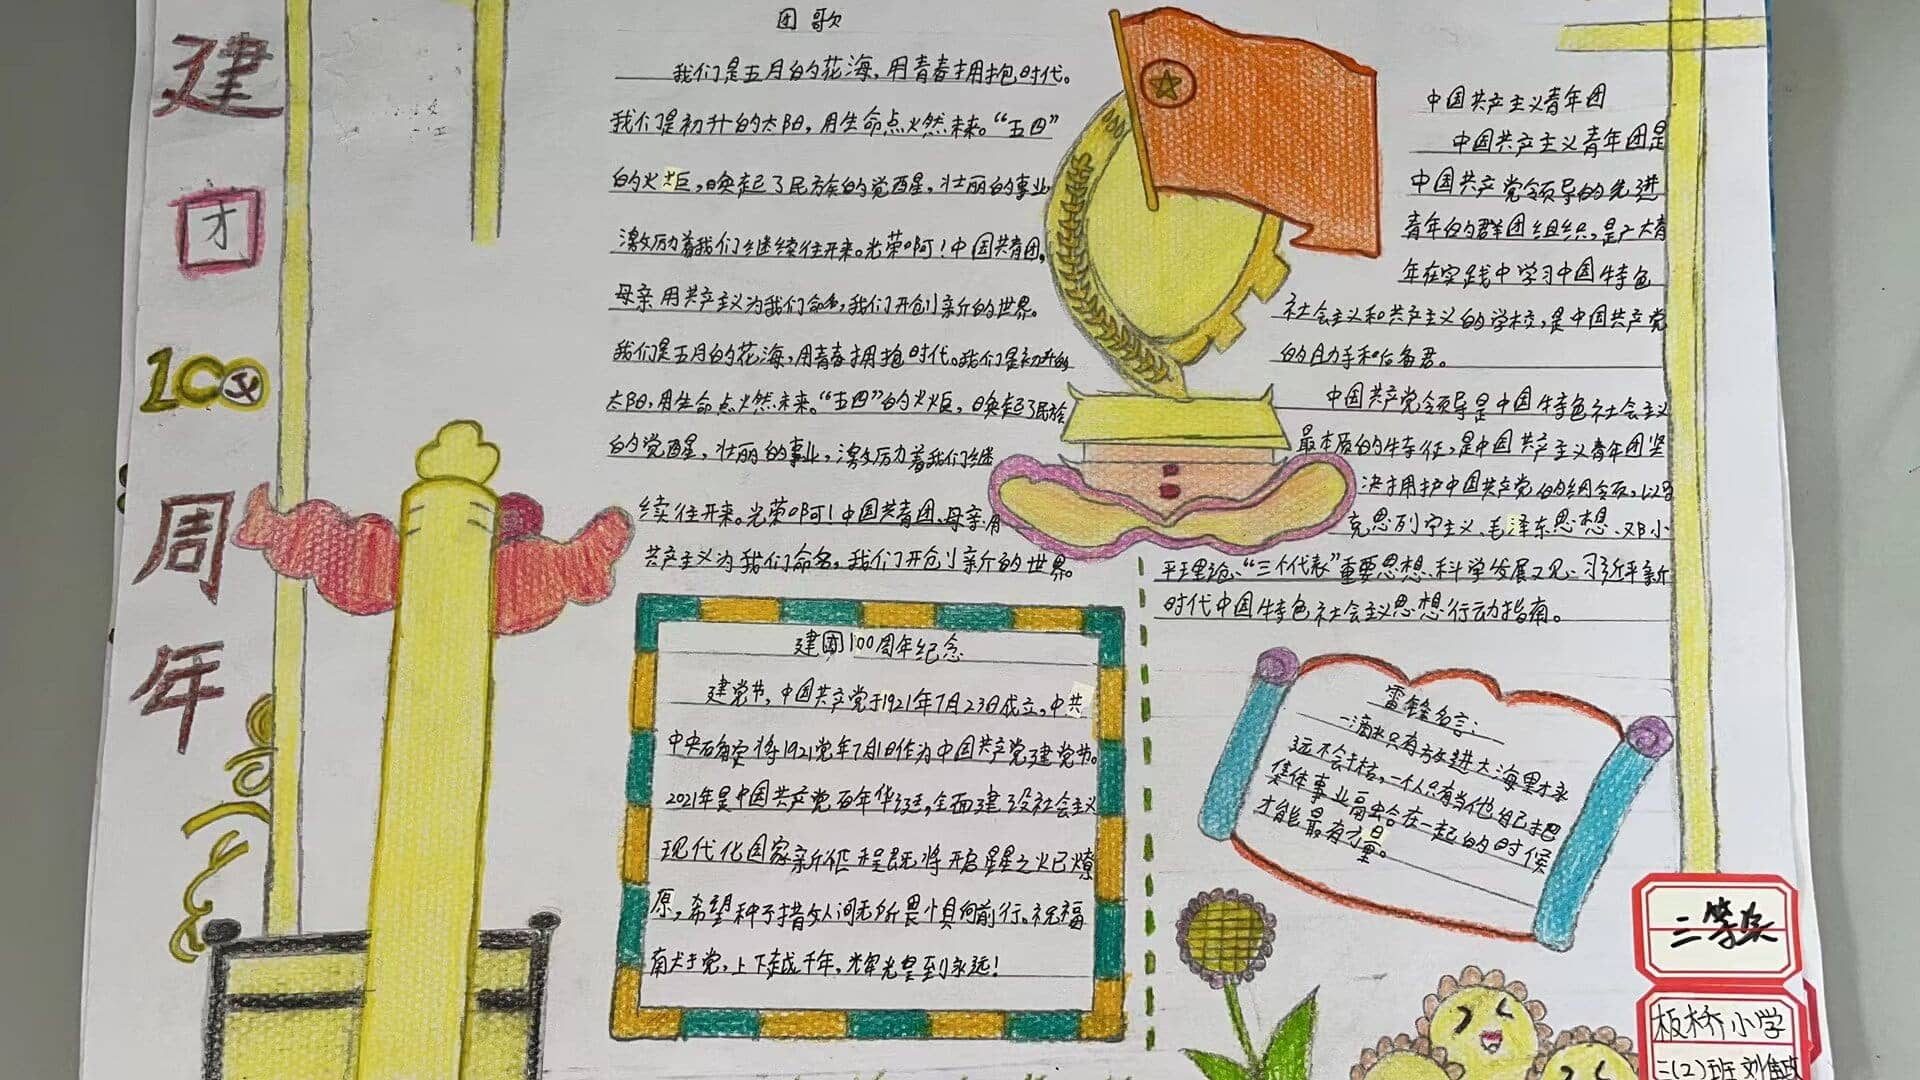 建
团
100
周
年
团歌
我们是五月的花海，用青春拥抱时代。
我们是初升的太阳，用生命点燃未来。“五四”
的火炬，唤起了民族的觉醒，壮丽的事业
激励着我们继续往开来。光荣啊！中国共青团，
母亲用共产主义为我们命名，我们开创新的世界。
我们是五月的花海，用青春拥抱时代。我们是初升的
太阳，用生命点燃未来。“五四”的火炬，唤起了民族
的觉醒，壮丽的事业，激励着我们继
续往开来。光荣啊！中国共青团，母亲用
共产主义为我们命名，我们开创新的世界。
中国共产主义青年团
中国共产主义青年团是
中国共产党领导的先进
青年的群团组织，是广大青
年在实践中学习中国特色
社会主义和共产主义的学校，是中国共产党
的助手和后备君。
中国共产党领导是中国特色社会主义
最本质的特征，是中国共产主义青年团坚
决拥护中国共产党的纲领，以马
克思列宁主义、毛泽东思想、邓小
平理论、“三个代表”重要思想、科学发展观、习近平新
时代中国特色社会主义思想行动指南。
建团100周年纪念
建党节，中国共产党于1921年7月23日成立。中共
中央确定将1921党年7月1日作为中国共产党建党节。
2021年是中国共产党百年华诞，全面建设社会主义
现代化国家新征程既将开启星星之火已燎
原，希望种子播女人间无所畏惧向前行。祝福
南犬于党，上下越千年，辉光皇到永远！
雷锋名言：
一滴水只有放进大海里才永
远不会干枯，一个人只有当他自己把
集体事业融合在一起的时候
才能最有力量。
三等奖
板桥小学
二(2)班 刘